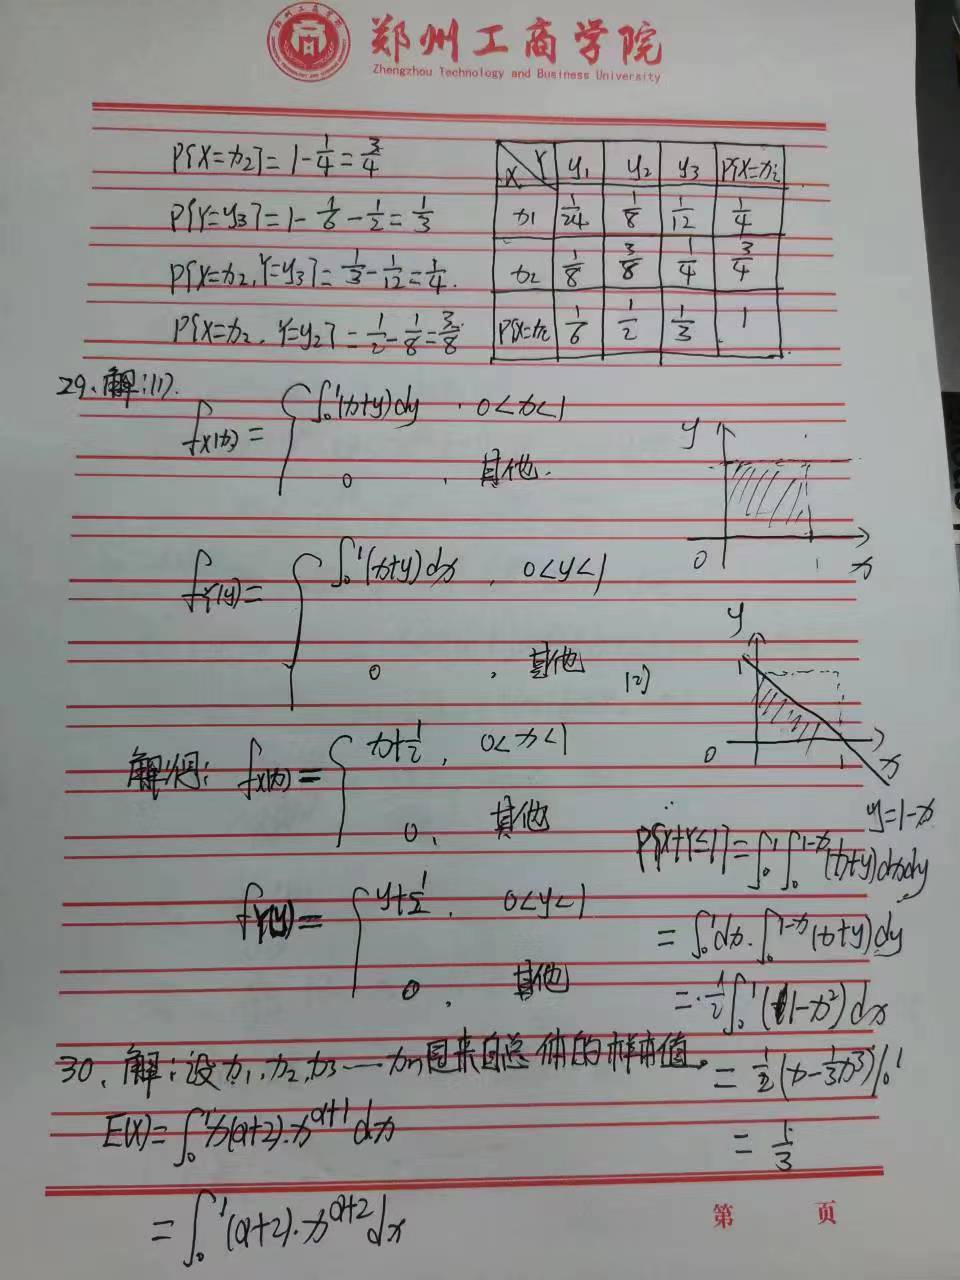 郑州工商学院
Zhengzhou Technology and Business University
P{X=x₂}=1-1/4=3/4
P{Y=y₃}=1-1/6-1/2=1/3
P{X=x₂,Y=y₃}=1/3-1/12=1/4.
P{X=x₂,Y=y₂}=1/2-1/8=3/8
X Y y₁ y₂ y₃ P{X=xᵢ
x₁ 1/24 1/8 1/12 1/4
x₂ 1/8 3/8 1/4 3/4
P{X=xᵢ 1/6 1/2 1/3 1
29、解:(1).
f_X(x)= { ∫₀¹(x+y)dy , 0<x<1
0 , 其他.
y 1
0 1 x
f_Y(y)= { ∫₀¹(x+y)dx , 0<y<1
0 , 其他
(2)
y
1
0 1 x
y=1-x
解得: f_X(x)= { x+1/2 , 0<x<1
0, 其他
f_Y(y)= { y+1/2 , 0<y<1
0 , 其他
P{X+Y≤1}=∫₀¹∫₀¹⁻ˣ(x+y)dxdy
=∫₀¹dx·∫₀¹⁻ˣ(x+y)dy
=1/2∫₀¹(1-x²)dx
=1/2(x-1/3x³)|₀¹
=1/3
30、解:设x₁,x₂,x₃—xₙ是来自总体的样本值。
E(X)=∫₀¹x(α+2)·x^(α+1)dx
=∫₀¹(α+2)·x^(α+2)dx
第 页